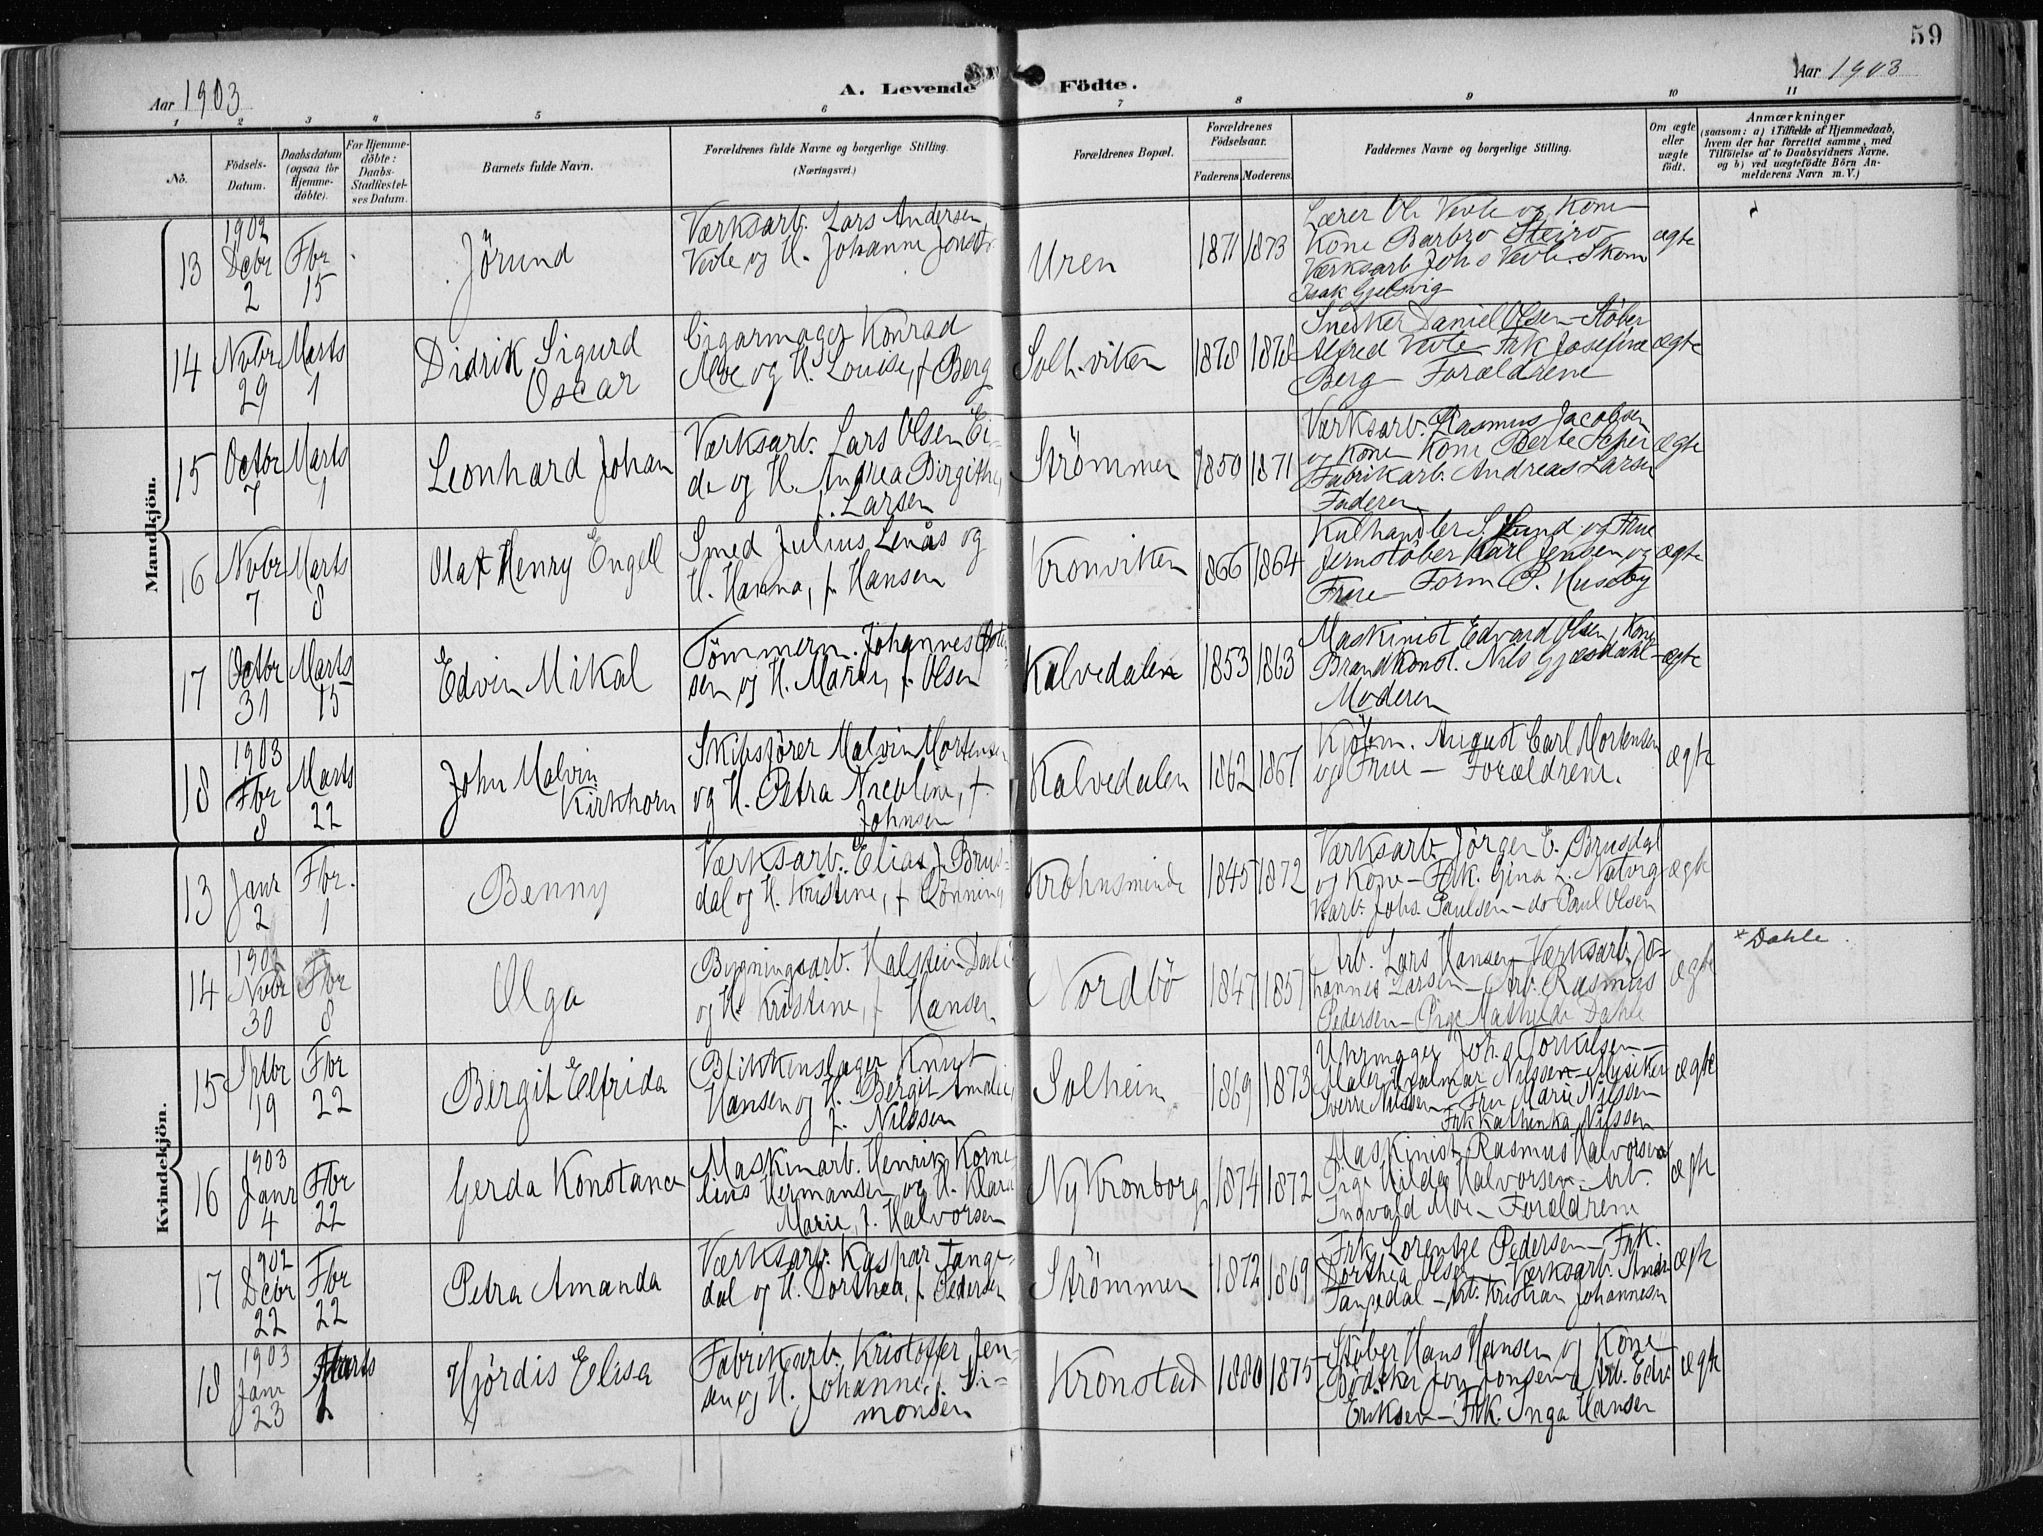 59
Aar 1903
A. Levende Födte.
Aar 1903
1 2 3 4 5 6 7 8 9 10 11
No.
Födsels-Datum.
Daabsdatum (ogsaa for Hjemmedöbte).
For Hjemmedöbte: Daabs-Stadfæstelses Datum.
Barnets fulde Navn.
Forældrenes fulde Navne og borgerlige Stilling. (Næringsvei.)
Forældrenes Bopæl.
Forældrenes Födselsaar.
Faderens. Moderens.
Faddernes Navne og borgerlige Stilling.
Om ægte eller uægte födt.
Anmærkninger
(saasom: a) i Tilfælde af Hjemmedaab, hvem der har forrettet samme, med Tilföielse af to Daabsvidners Navne, og b) ved uægtefödte Börn Anmelderens Navn m. V.)
Mandkjön.
13
1902 Decbr 2
Fbr 15
Jörund
Værksarb. Lars Andersen
Vevle og H. Johanne
Uren
1871 1873
Lærer Ol. Vevle og Kone
Kone Barbro Steiro
Værksarb Johs Vevle. Skom
Isak Gjelsvig
ægte
14
Novbr 29
Marts 1
Didrik Sigurd
Oscar
Cigarmager Konrad
Moe og H. Louise, f. Berg
Solh.viken
1878 1878
Snedker Daniel Olsen - Støber
Alfred Vevle Frk Josefine
Berg - Forældrene
ægte
15
Octbr 7
Marts 1
Leonhard Johan
Værksarb. Lars Olsen Ei-
de og H. Andrea Birgithe,
f. Larsen
Strömmen
1850 1871
Værksarb. Rasmus Jacobsen
og Kone Kone Berte
Fabrikarb. Andreas Larsen
Faderen
ægte
16
Novbr 7
Marts 8
Olaf Henry Engell
Smed Julius Lenås og
H. Hanna, f. Hansen
Kronviken
1866 1864
Kulhandler S. Lund og Frue
Jernstøber Karl Jensen og
Frue - Form P. Huseby
ægte
17
Octbr 31
Marts 15
Edvin Mikal
Tömmerm. Johannes
sen og H. Marie, f. Olsen
Kalvedalen
1853 1863
Maskinist Edvard Olsen, Kone
Brandkonst. Nils Gjæsdahl -
Moderen
ægte
18
1903 Fbr 8
Marts 22
John Malvin
Kirkhorn
Skibsförer Malvin Mortensen
og H. Petra Nicoline, f.
Johnsen
Kalvedalen
1862 1867
Kjöbm. August Carl Mortensen
og Frue - Forældrene.
ægte
Kvindekjön.
13
Janr 2
Fbr. 1
Benny
Værksarb. Elias J. Brus-
dal og H. Kristine, f. Lönning
Krohnsminde
1845 1872
Værksarb. Jörgen E. Brusdal
og Kone - Frk. Gina L. Natvig
Varb. Johs. Paulsen - do Paul Olsen
ægte
14
1902 Novbr 30
Fbr 8
Olga
Bygningsarb. Halstein
og H. Kristine, f. Hansen
Nordbö
1847 1857
Arb. Lars Hansen - Værksarb. Jo-
hannes Larsen - Arb. Rasmus
Pedersen - Pige Mathilde Dahle
ægte
× Dahle
15
Sptbr 19
Fbr 22
Bergit Elfrida
Blikkenslager Knut
Hansen og H. Bergit Amalie,
f. Nilssen
Solheim
1869 1873
Uhrmager Joh. Torkilsen -
Maler Hjalmar Nilssen - Musiker
Sverre Nilssen - Fru Marie Nilssen
Frk Kathinka Nilssen
ægte
16
1903 Janr 4
Fbr 22
Gerda Konstance
Maskinarb. Henrik Korne-
lius Hermansen og H. Klara
Marie, f. Halvorsen
Ny Kronborg
1874 1872
Maskinist Rasmus Halvorsen
Pige Hilda Halvorsen - Arb.
Ingvald Moe - Forældrene
ægte
17
1902 Dcbr 22
Fbr 22
Petra Amanda
Værksarb. Kaspar Tange-
dal og H. Dorthea, f. Pedersen
Strömmen
1872 1869
Frk. Lorentze Pedersen - Frk.
Dorthea Olsen - Værksarb. Andr.
Tangedal - Arb. Kristian Johannesen
ægte
18
1903 Janr 23
Marts 1
Hjördis Elisa
Fabrikarb. Kristoffer Jen-
sen og H. Johanne, f. Si-
monsen
Kronstad
1880 1875
Støber Hans Hansen og Kone
Bödker Jon Jonsen, Arb. Edv.
Eriksen - Frk. Inga Hansen
ægte